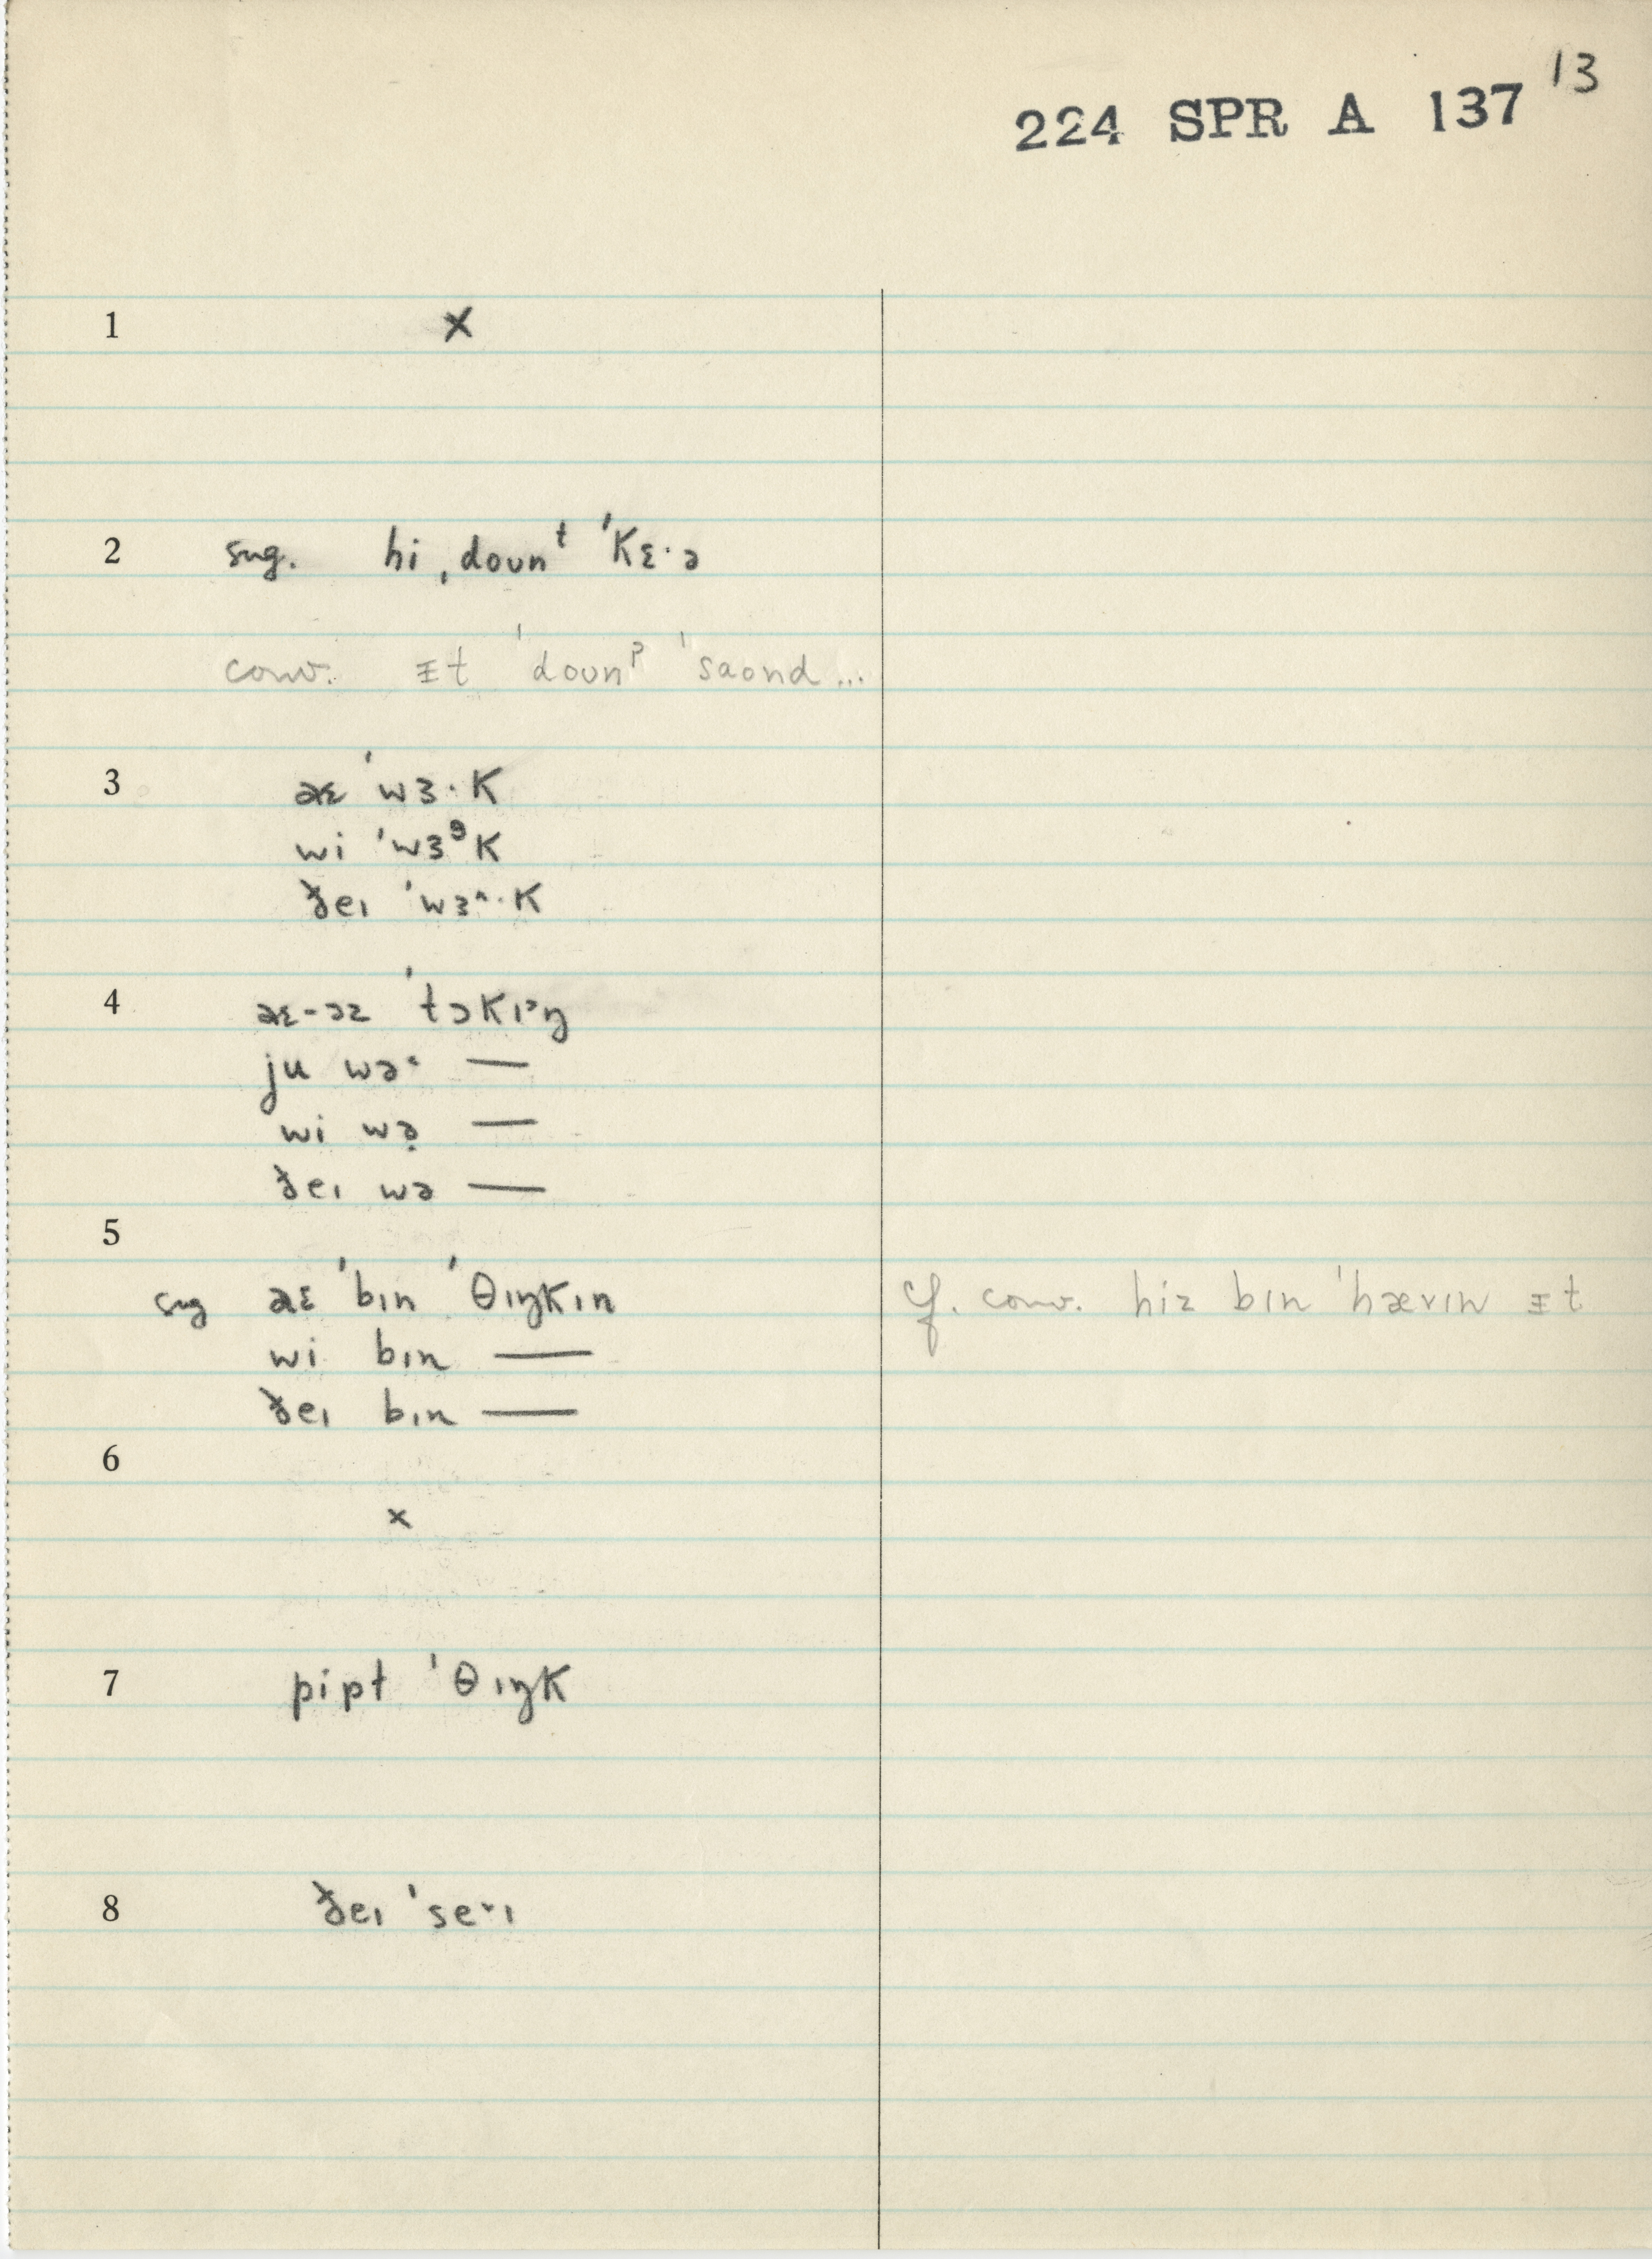 13
224 SPR A 137
1 x
2 sug. hi ˌdoʊnᵗ ˈkɛ·ə
conv. ᵻt ˈdoʊnˀ ˈsaʊnd...
3 aɛ ˈwɜ·k
wi ˈwɜᵊk
ðeɪ ˈwɜ^·k
4 aɛ-əz ˈtɔkɪ˃ŋ
ju wə˞ —
wi wə̣ —
ðeɪ wə —
5
sug aɛ ˈbɪn ˈθɪŋkɪn
wi bɪn —
ðeɪ bɪn —
cf. conv. hiz bɪn ˈhævɪn ᵻt
6
x
7 pipt ˈθɪŋk
8 ðeɪ ˈse˅ɪ